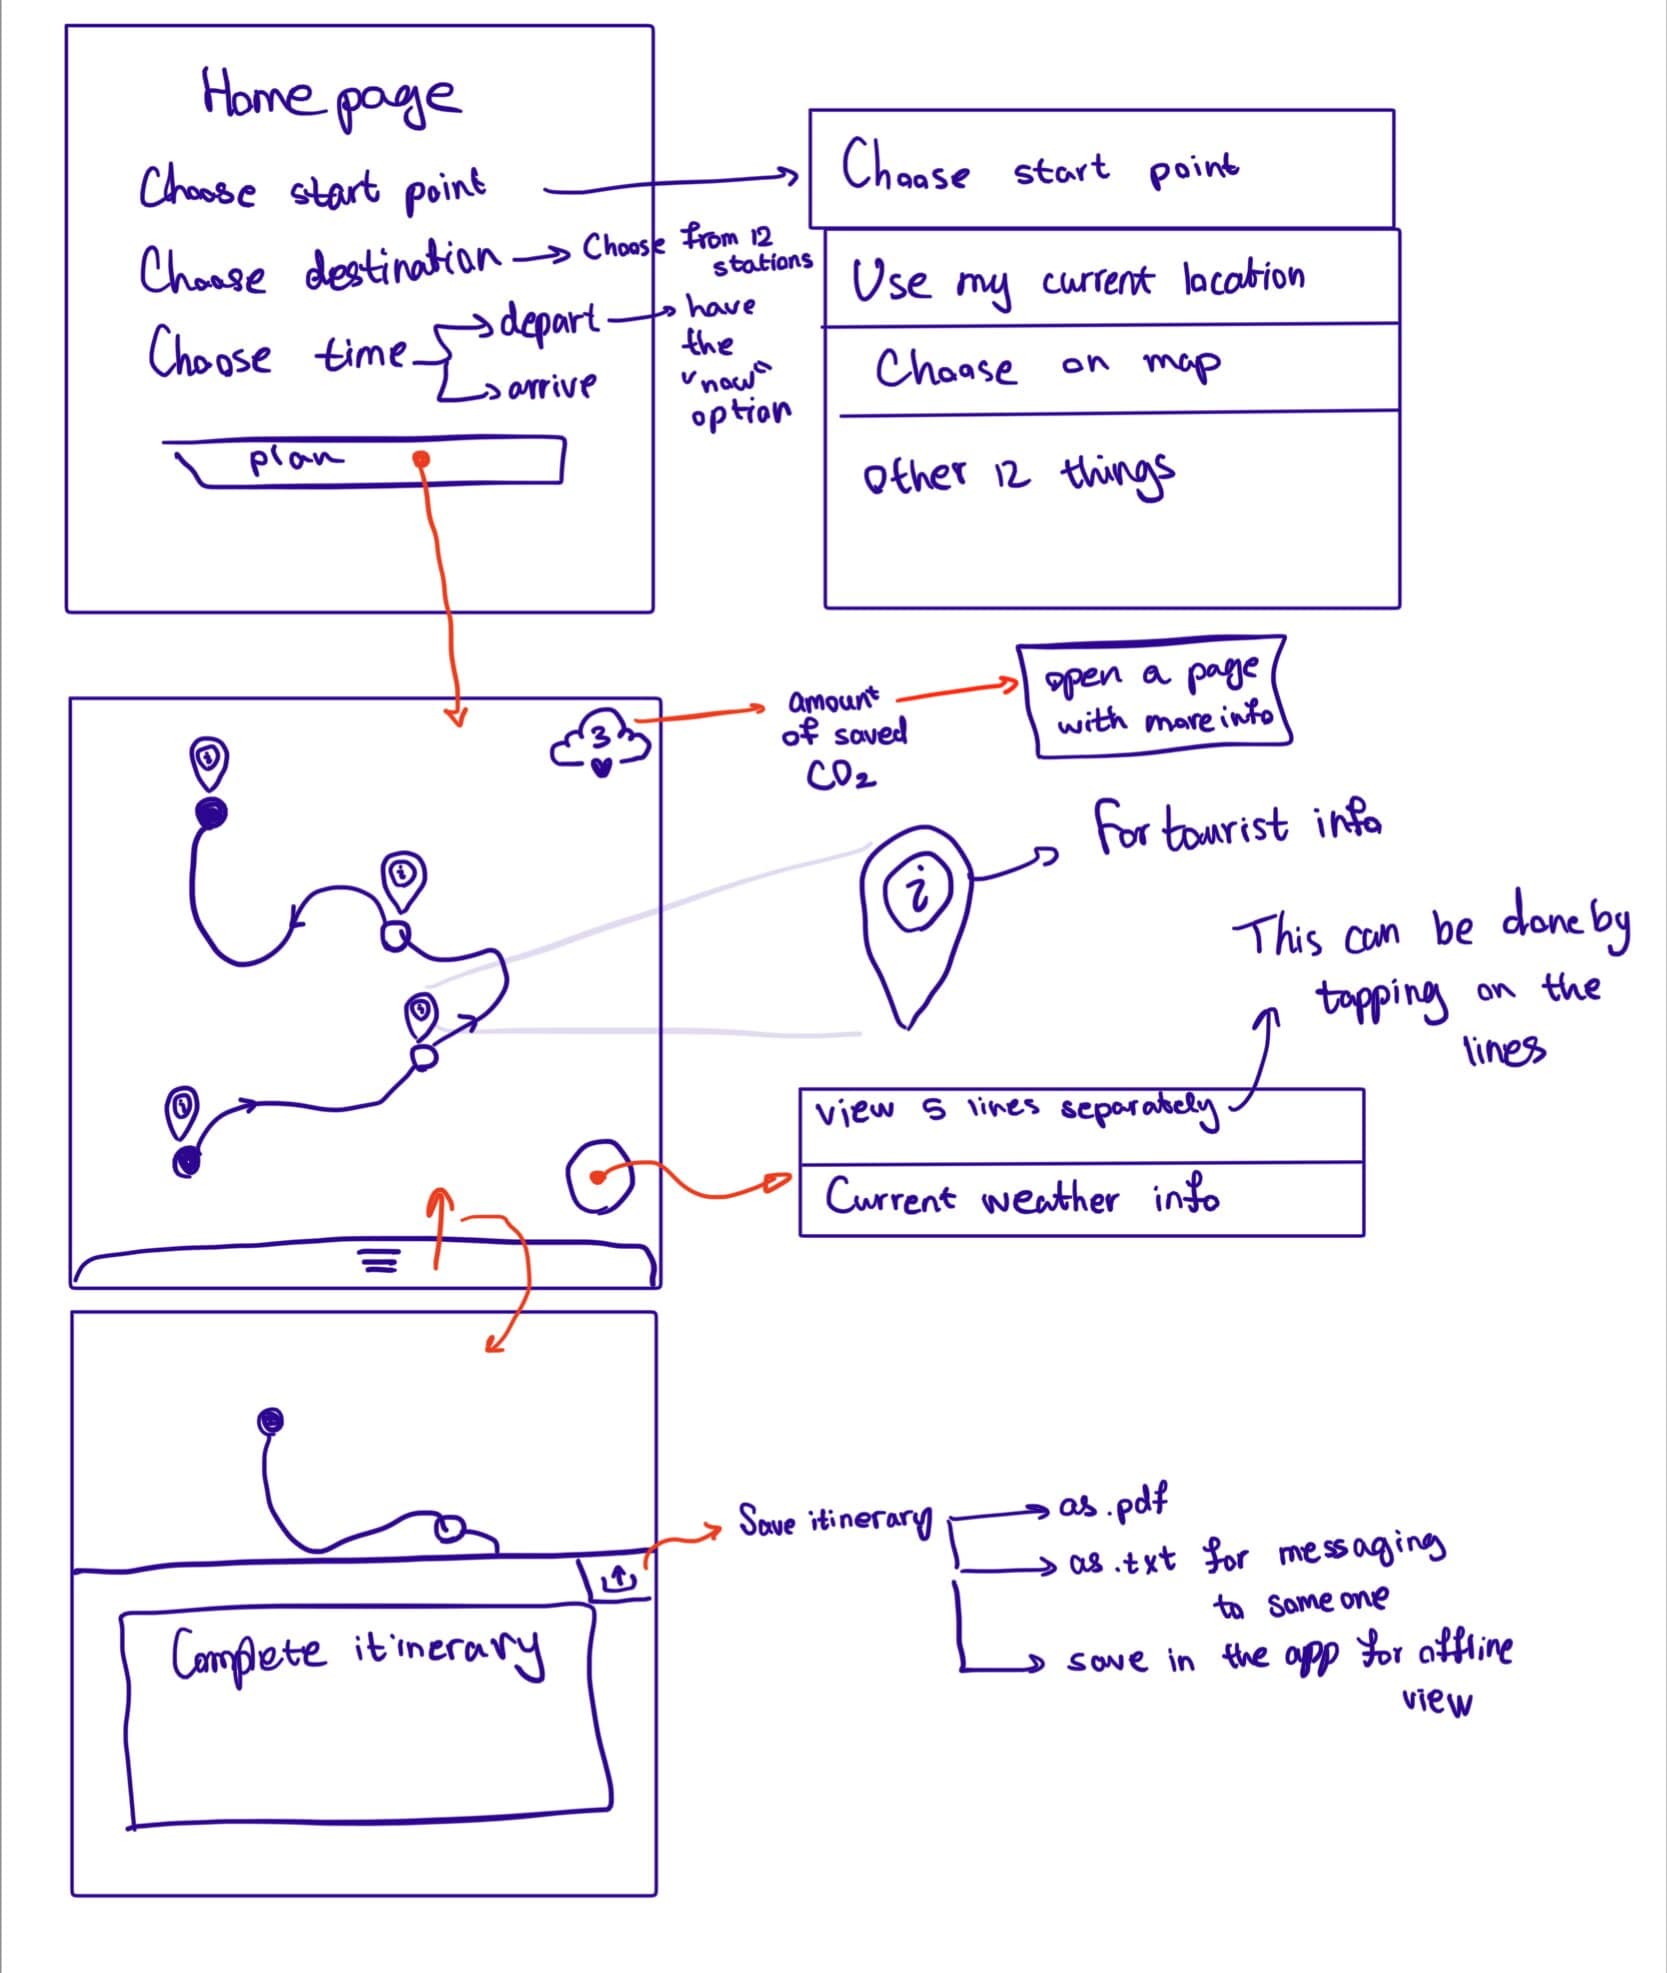 Home page
Choose start point
Choose destination
Choose from 12
stations
Choose time
depart
arrive
have
the
"now"
option
plan
Choose start point
Use my current location
Choose on map
Other 12 things
3
amount
of saved
CO2
open a page
with more info
i
i
i
i
i
For tourist info
This can be done by
tapping on the
lines
view 5 lines separately
Current weather info
Save itinerary
as .pdf
as .txt for messaging
to someone
save in the app for offline
view
Complete itinerary